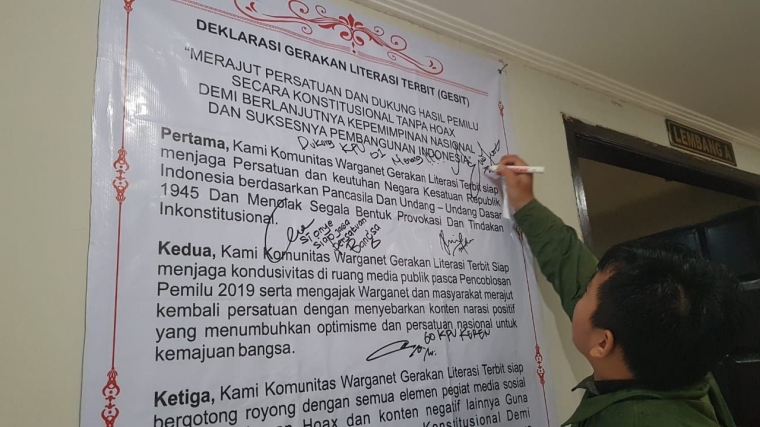 DEKLARASI GERAKAN LITERASI TERBIT (GESIT)
"MERAJUT PERSATUAN DAN DUKUNG HASIL PEMILU
SECARA KONSTITUSIONAL TANPA HOAX
DEMI BERLANJUTNYA KEPEMIMPINAN NASIONAL
DAN SUKSESNYA PEMBANGUNAN INDONESIA
Dukung KPU
Pertama, Kami Komunitas Warganet Gerakan Literasi Terbit siap
menjaga Persatuan dan keutuhan Negara Kesatuan Republik
Indonesia berdasarkan Pancasila Dan Undang – Undang Dasar
1945 Dan Menolak Segala Bentuk Provokasi Dan Tindakan
Inkonstitusional.
siap jaga
persatuan
Bangsa
Kedua, Kami Komunitas Warganet Gerakan Literasi Terbit Siap
menjaga kondusivitas di ruang media publik pasca Pencoblosan
Pemilu 2019 serta mengajak Warganet dan masyarakat merajut
kembali persatuan dengan menyebarkan konten narasi positif
yang menumbuhkan optimisme dan persatuan nasional untuk
kemajuan bangsa.
GO KPU KEREN
Ketiga, Kami Komunitas Warganet Gerakan Literasi Terbit siap
bergotong royong dengan semua elemen pegiat media sosial
Hoax dan konten negatif lainnya Guna
Konstitusional Demi
LEMBANG A